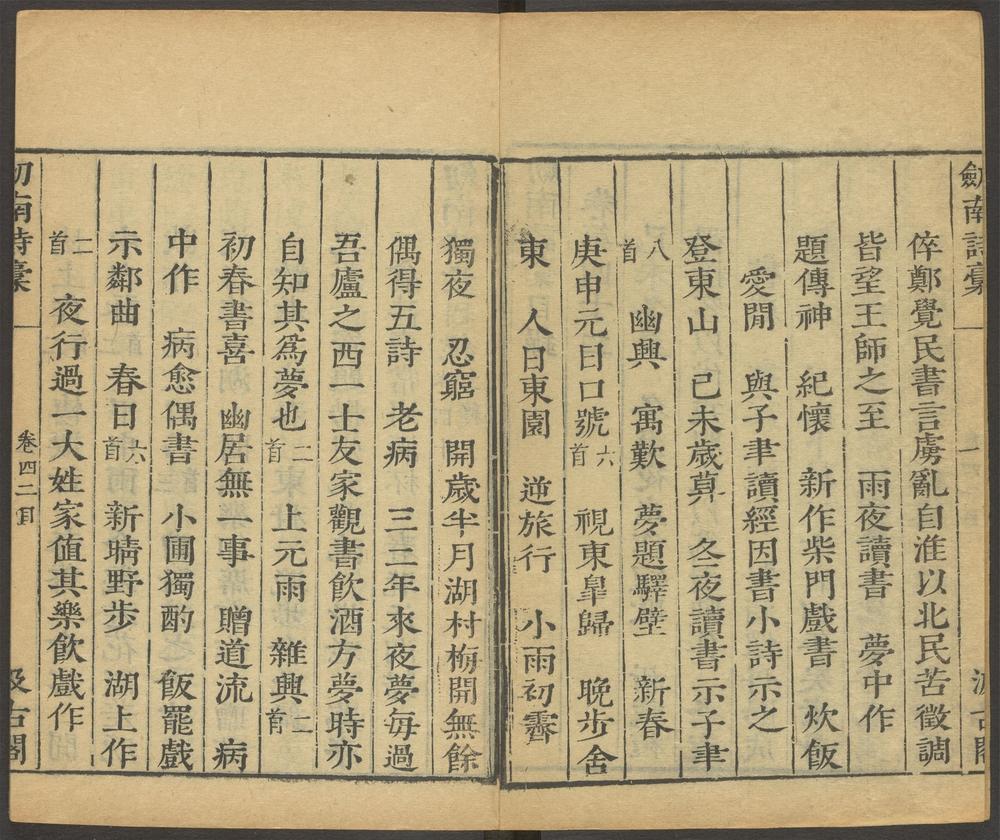 劎南詩稾
一
汲古閣
倅鄭覺民書言虜亂自淮以北民苦徵調
皆望王師之至 雨夜讀書 夢中作
題傳神 紀懷 新作柴門戲書 炊飯
愛閒 與子聿讀經因書小詩示之
登東山 己未歲莫 冬夜讀書示子聿
八首 幽興 寓歎 夢題驛壁 新春
庚申元日口號六首 視東臯歸 晚步舍
東 人日東園 逆旅行 小雨初霽
獨夜 忍窮 開歲半月湖村梅開無餘
偶得五詩 老病 三三年來夜夢每過
吾廬之西一士友家觀書飲酒方夢時亦
自知其爲夢也二首 上元雨 雜興二首
初春書喜 幽居無一事 贈道流 病
中作 病愈偶書 小圃獨酌 飯罷戲
示鄰曲 春日六首 新晴野步 湖上作
二首 夜行過一大姓家値其樂飲戲作
劎南詩稾
卷四二目
汲古閣